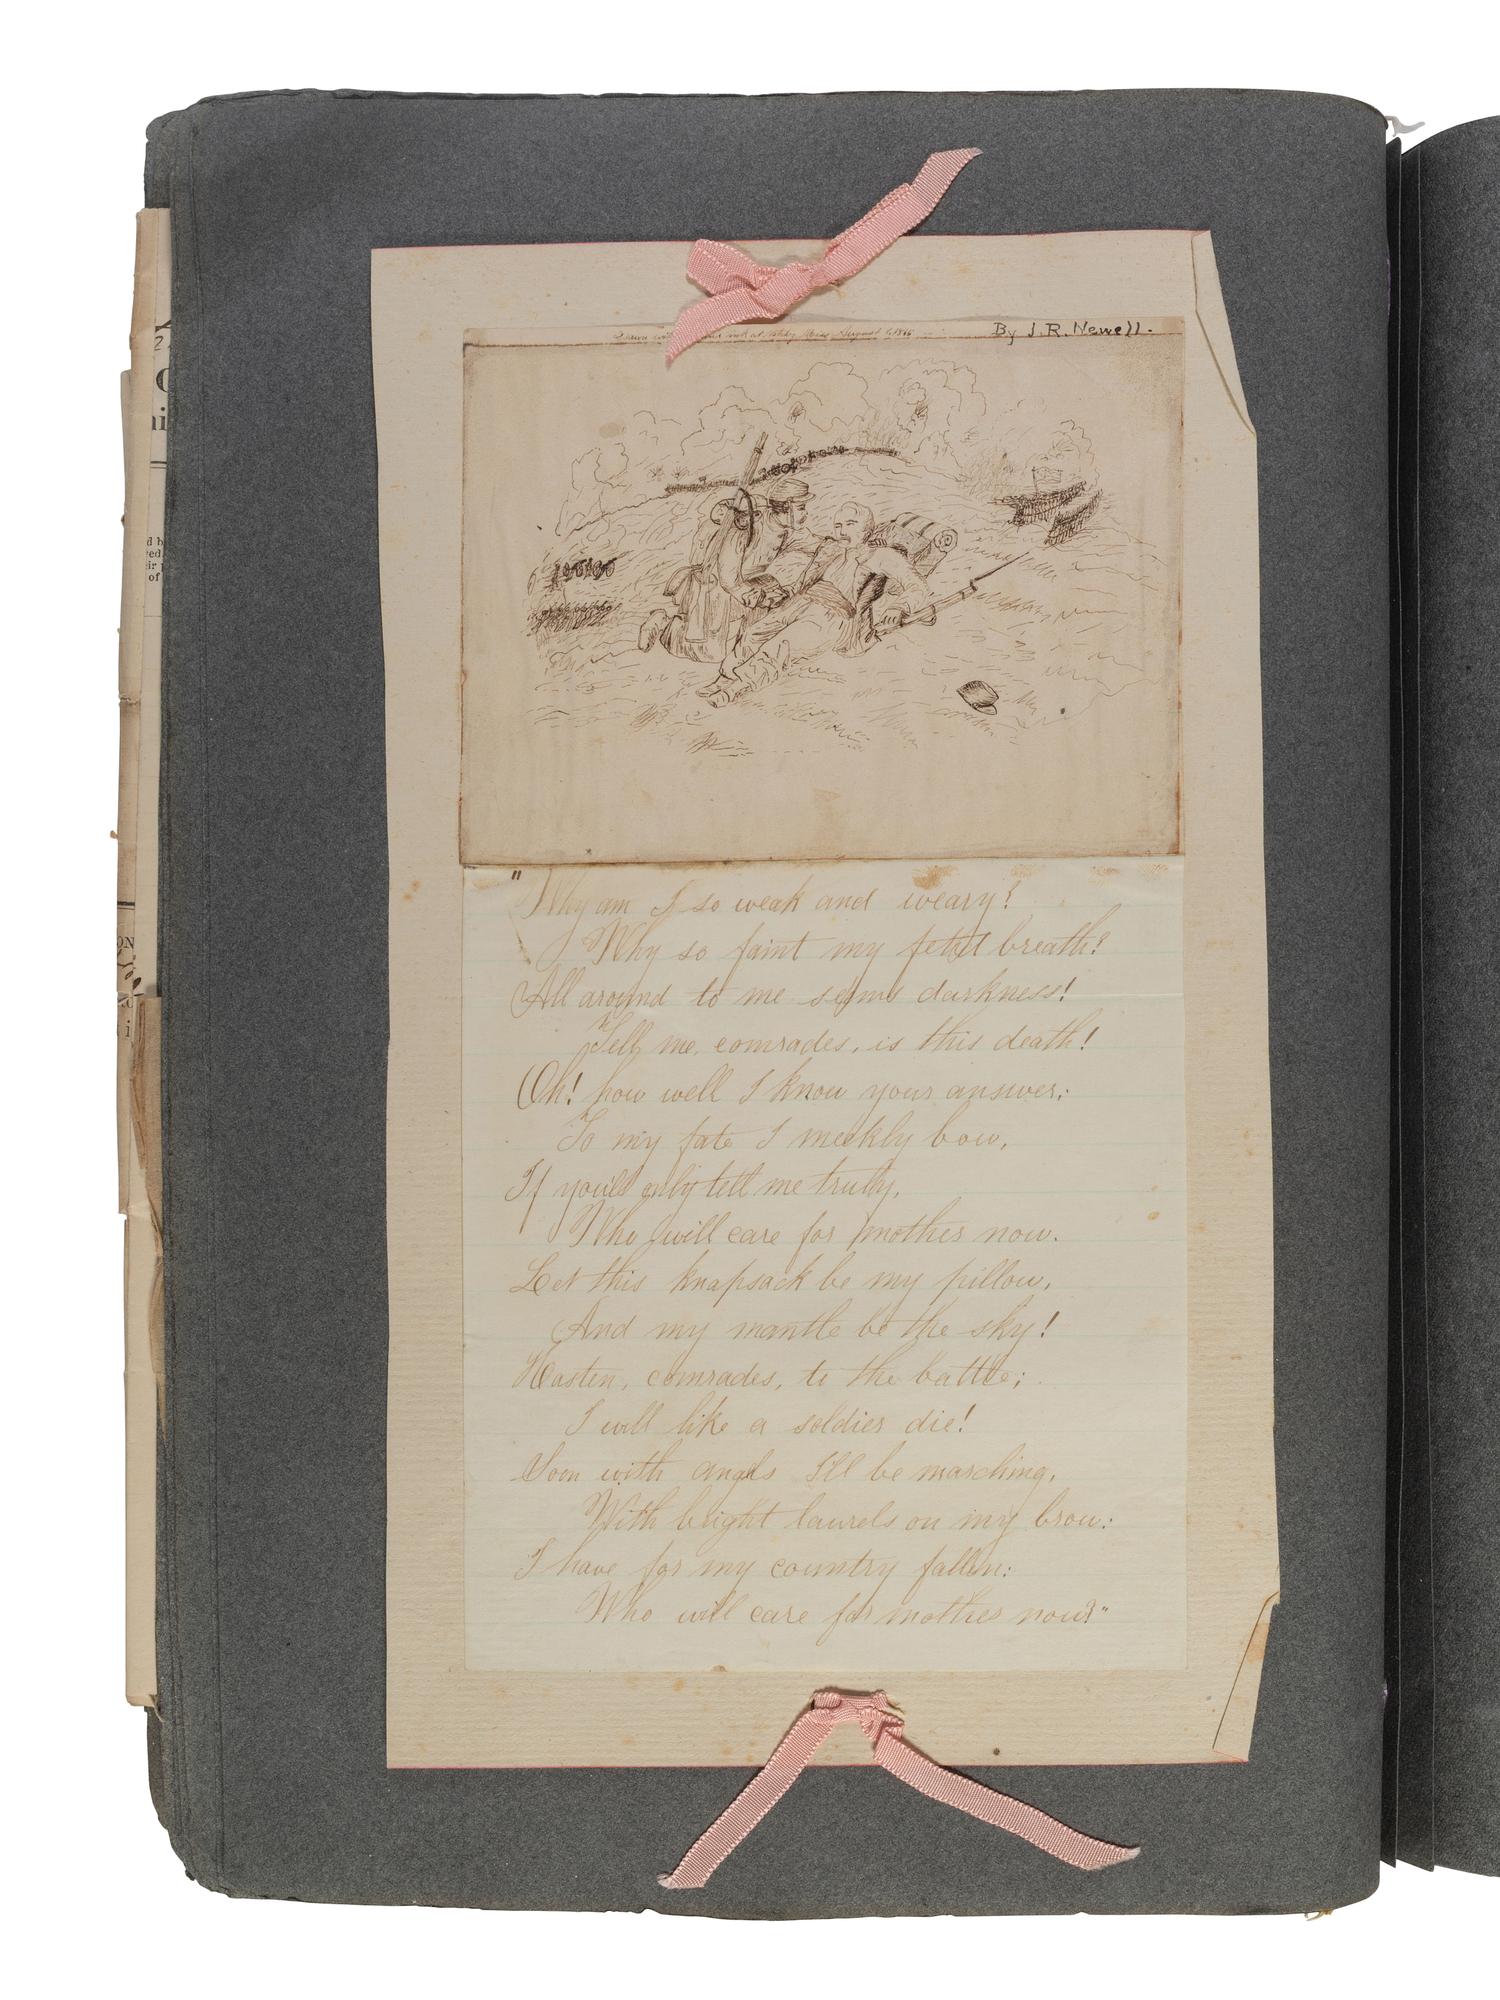 Drawn with and ink at Mass August 1, 1865
By J. R. Newell.
"Why am I so weak and weary?
Why so faint my fetid breath?
All around to me seems darkness!
Tell me, comrades, is this death!
Oh! how well I know your answer;
To my fate I meekly bow,
If you'll only tell me truly,
Who will care for mother now.
Let this knapsack be my pillow,
And my mantle be the sky!
Hasten, comrades, to the battle;
I will like a soldier die!
Soon with angels I'll be marching,
With bright laurels on my brow:
I have for my country fallen:
Who will care for mother now?"